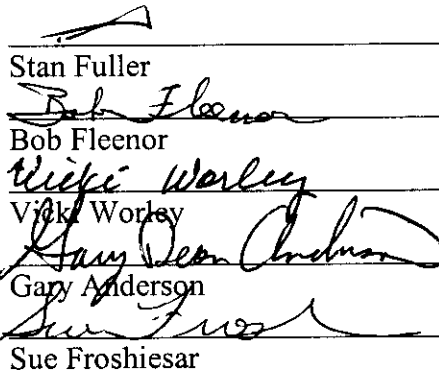 Stan Fuller
Bob Fleenor
Bob Fleenor
Vicki Worley
Vicki Worley
Gary Dean Anderson
Gary Anderson
Sue Frosh
Sue Froshiesar